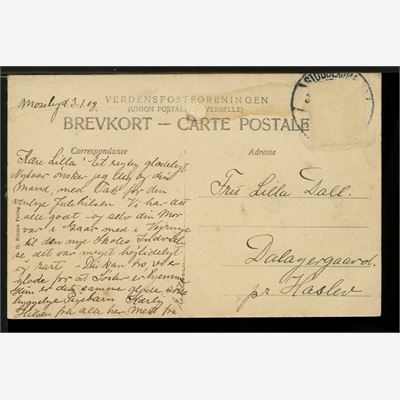 Moselyd 3-1-09.
VERDENSPOSTFORENINGEN
(UNION POSTALE VERSELLE)
BREVKORT — CARTE POSTALE
Correspondance
Kære Lilla! Et rigtig glædeligt
Nytaar ønsker jeg dig og din
Mand, med Tak for den
venlige Julehilsen. Vi har det
alle godt - og selv din Mor
var i Gaar med i
til den nye Skoles Indviel-
se, det var meget højtideligt
og rart - Du kan tro, vi er
glade for at hjemme
hun er det samme glade, søde
hyggelige Kærlig
Hilsen fra alle her Mest fra
Adresse
Fru Lilla Dall.
Dalagergaard.
pr. Haslev